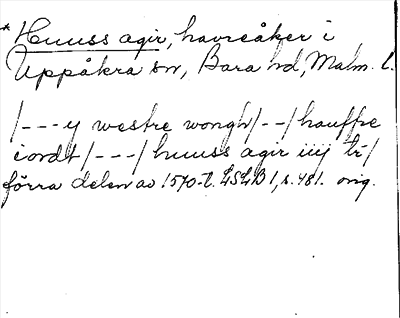 * Huuss agir, havreåker i
Uppåkra sn, Bara hd, Malm. l.
/---y westre wongh/--/hauffre
iordt/---/huuss agir iiij tr/
förra delen av 1570-t. LSLB 1, s. 481. orig.